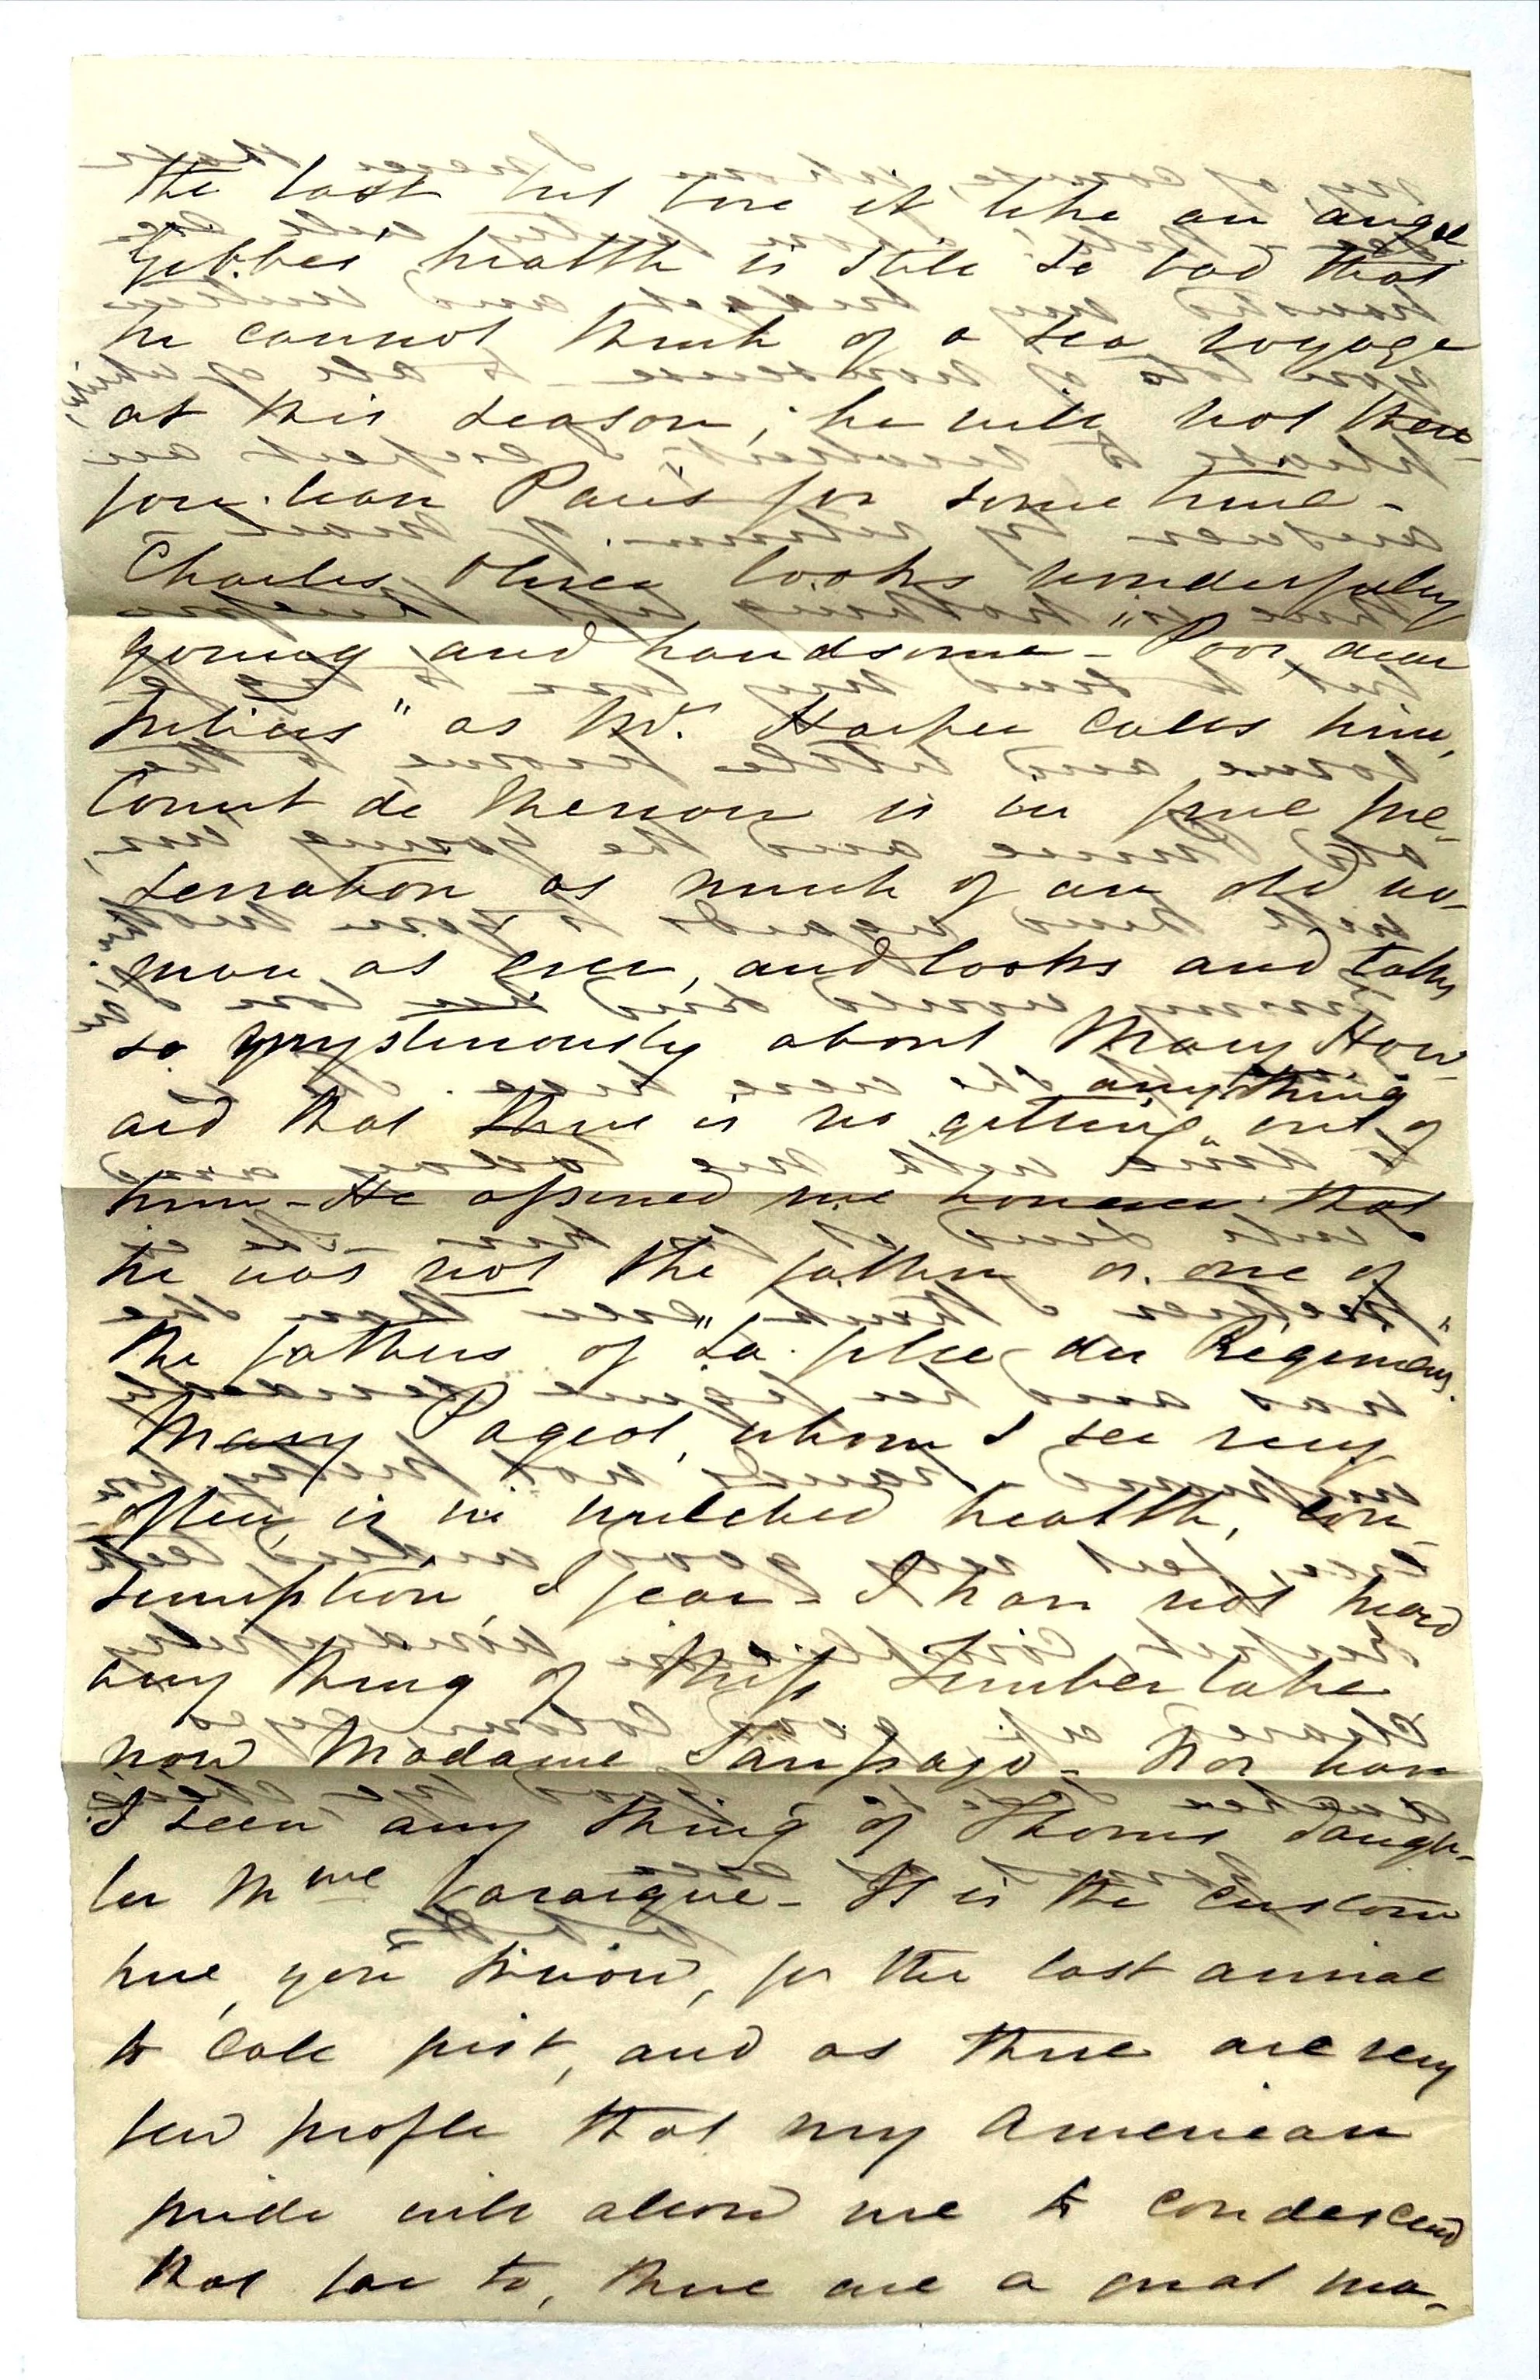 the last but bore it like an angel
Gibbes' health is still so bad that
he cannot think of a sea voyage
at this season; he will not there-
fore leave Paris for some time -
Charles Oliver looks wonderfully
young and handsome - "Poor dear
Julius" as Mr. Harper calls him,
Count de Menou is in fine pre-
servation as much of an old wo-
man as ever, and looks and talks
so mysteriously about Mary How-
anything
ard that there is no getting out of
him - He assured me however that
he was not the father or one of
the fathers of "La fille du Régiment.
Mary Pageot, whom I see very
often, is in wretched health, con-
sumption, I fear - I have not heard
any thing of Miss Timberlake
now Madame Sampayo - Nor have
I seen any thing of Thorn's daugh-
ter Mme Varaigne - It is the custom
here, you know, for the last arrival
to call first, and as there are very
few people that my American
pride will allow me to condescend
that far to, there are a great ma-